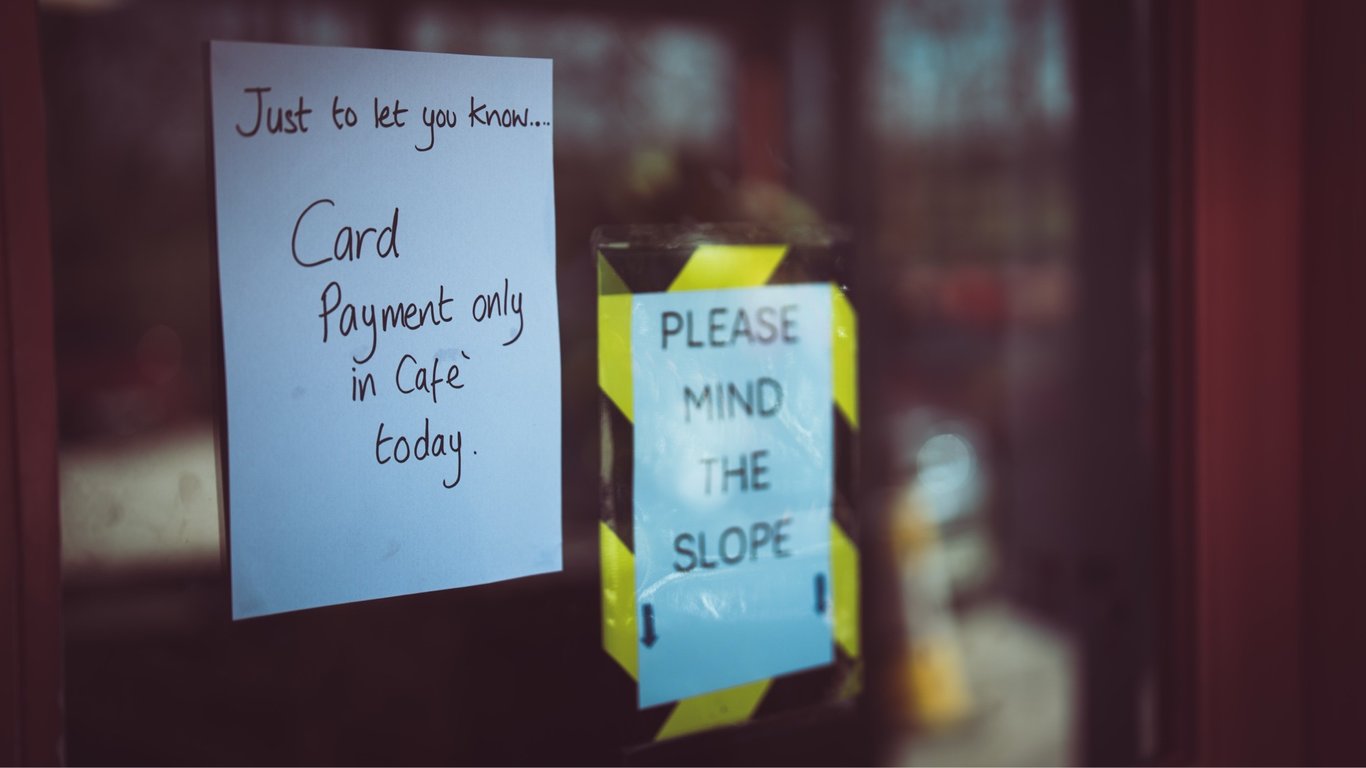 Just to let you know....
Card
Payment only
in Cafè
today.
PLEASE
MIND
THE
SLOPE